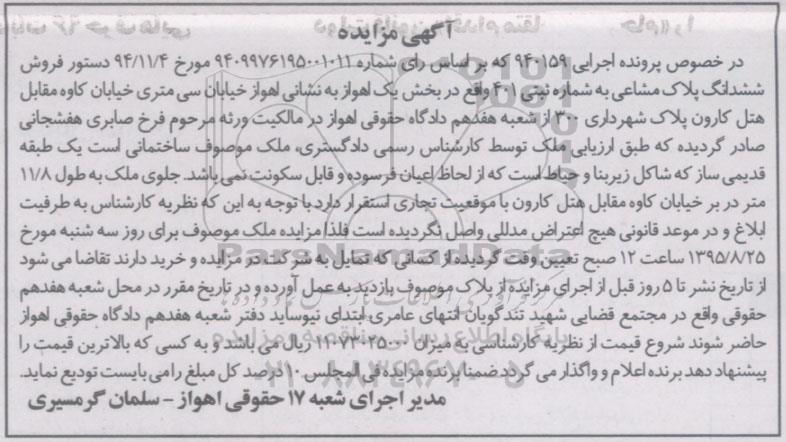 آگهی مزایده
در خصوص پرونده اجرایی ۹۴۰۱۵۹ که بر اساس رای شماره ۹۴۰۹۹۷۶۱۹۵۰۰۱۰۱۱ مورخ ۹۴/۱۱/۴ دستور فروش
ششدانگ پلاک مشاعی به شماره ثبتی ۴۰۱ واقع در بخش یک اهواز به نشانی اهواز خیابان سی متری خیابان کاوه مقابل
هتل کارون پلاک شهرداری ۳۰۰ از شعبه هفدهم دادگاه حقوقی اهواز در مالکیت ورثه مرحوم فرخ صابری هفشجانی
صادر گردیده که طبق ارزیابی ملک توسط کارشناس رسمی دادگستری، ملک موصوف ساختمانی است یک طبقه
قدیمی ساز که شاکل زیربنا و حیاط است که از لحاظ اعیان فرسوده و قابل سکونت نمی باشد. جلوی ملک به طول ۱۱/۸
متر در بر خیابان کاوه مقابل هتل کارون با موقعیت تجاری استقرار دارد با توجه به این که نظریه کارشناس به طرفیت
ابلاغ و در موعد قانونی هیچ اعتراض مدللی واصل نگردیده است فلذا مزایده ملک موصوف برای روز سه شنبه مورخ
۱۳۹۵/۸/۲۵ ساعت ۱۲ صبح تعیین وقت گردیده از کسانی که تمایل به شرکت در مزایده و خرید دارند تقاضا می شود
از تاریخ نشر تا ۵ روز قبل از اجرای مزایده از پلاک موصوف بازدید به عمل آورده و در تاریخ مقرر در محل شعبه هفدهم
حقوقی واقع در مجتمع قضایی شهید تندگویان انتهای عامری ابتدای نیوساید دفتر شعبه هفدهم دادگاه حقوقی اهواز
حاضر شوند شروع قیمت از نظریه کارشناسی به میزان ریال می باشد و به کسی که بالاترین قیمت را
پیشنهاد دهد برنده اعلام و واگذار می گردد ضمنا برنده مزایده فی المجلس ۱۰ درصد کل مبلغ را می بایست تودیع نماید.
مدیر اجرای شعبه ۱۷ حقوقی اهواز - سلمان گرمسیری
ParsNamadData
پایگاه اطلاع رسانی مناقصه و مزایده
۰۲۱-۸۸۳۴۹۶۷۰-۵